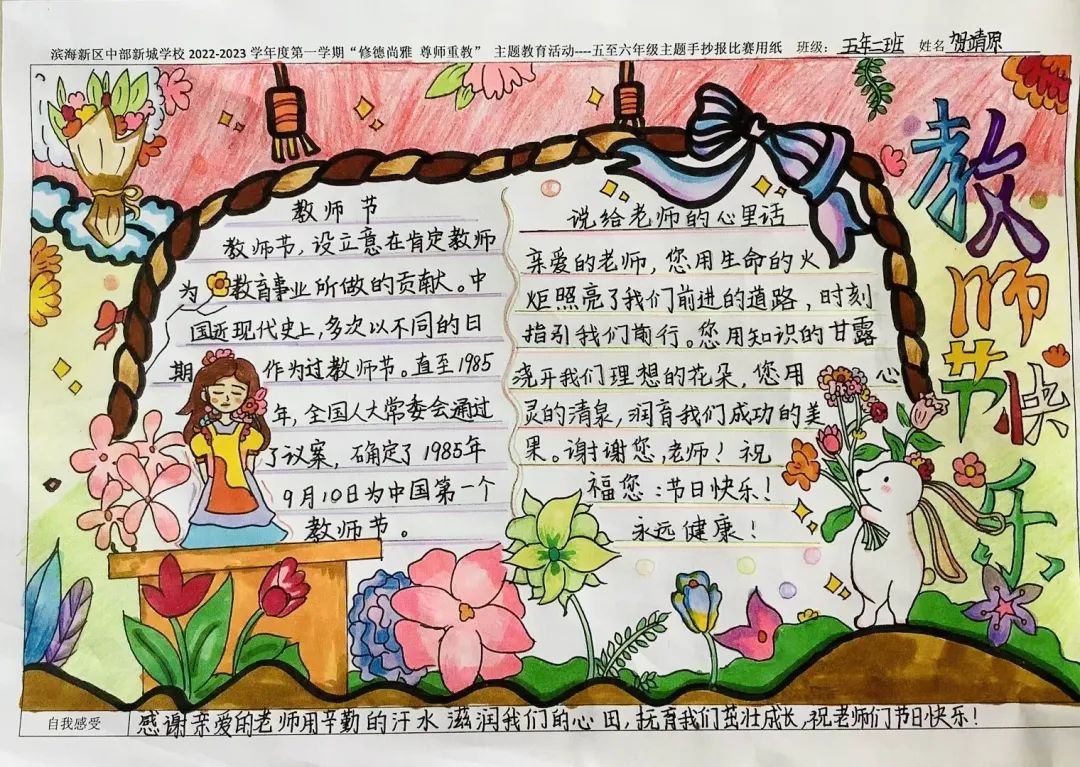 滨海新区中部新城学校 2022-2023 学年度第一学期“修德尚雅 尊师重教” 主题教育活动----五至六年级主题手抄报比赛用纸 班级：五年二班 姓名 贺靖原
教师节快乐
教师节
教师节，设立意在肯定教师
为教育事业所做的贡献。中
国近现代史上，多次以不同的日
期作为过教师节。直至1985
年，全国人大常委会通过
了议案，确定了1985年
9月10日为中国第一个
教师节。
说给老师的心里话
亲爱的老师，您用生命的火
炬照亮了我们前进的道路，时刻
指引我们前行。您用知识的甘露
浇开我们理想的花朵，您用心
灵的清泉，润育我们成功的美
果。谢谢您，老师！祝
福您：节日快乐！
永远健康！
自我感受 感谢亲爱的老师用辛勤的汗水滋润我们的心田，抚育我们茁壮成长，祝老师们节日快乐！